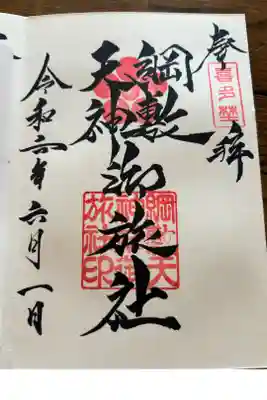 奉拝
喜多埜
綱敷
天神御旅社
綱敷天
神御
旅社印
令和年六月一日